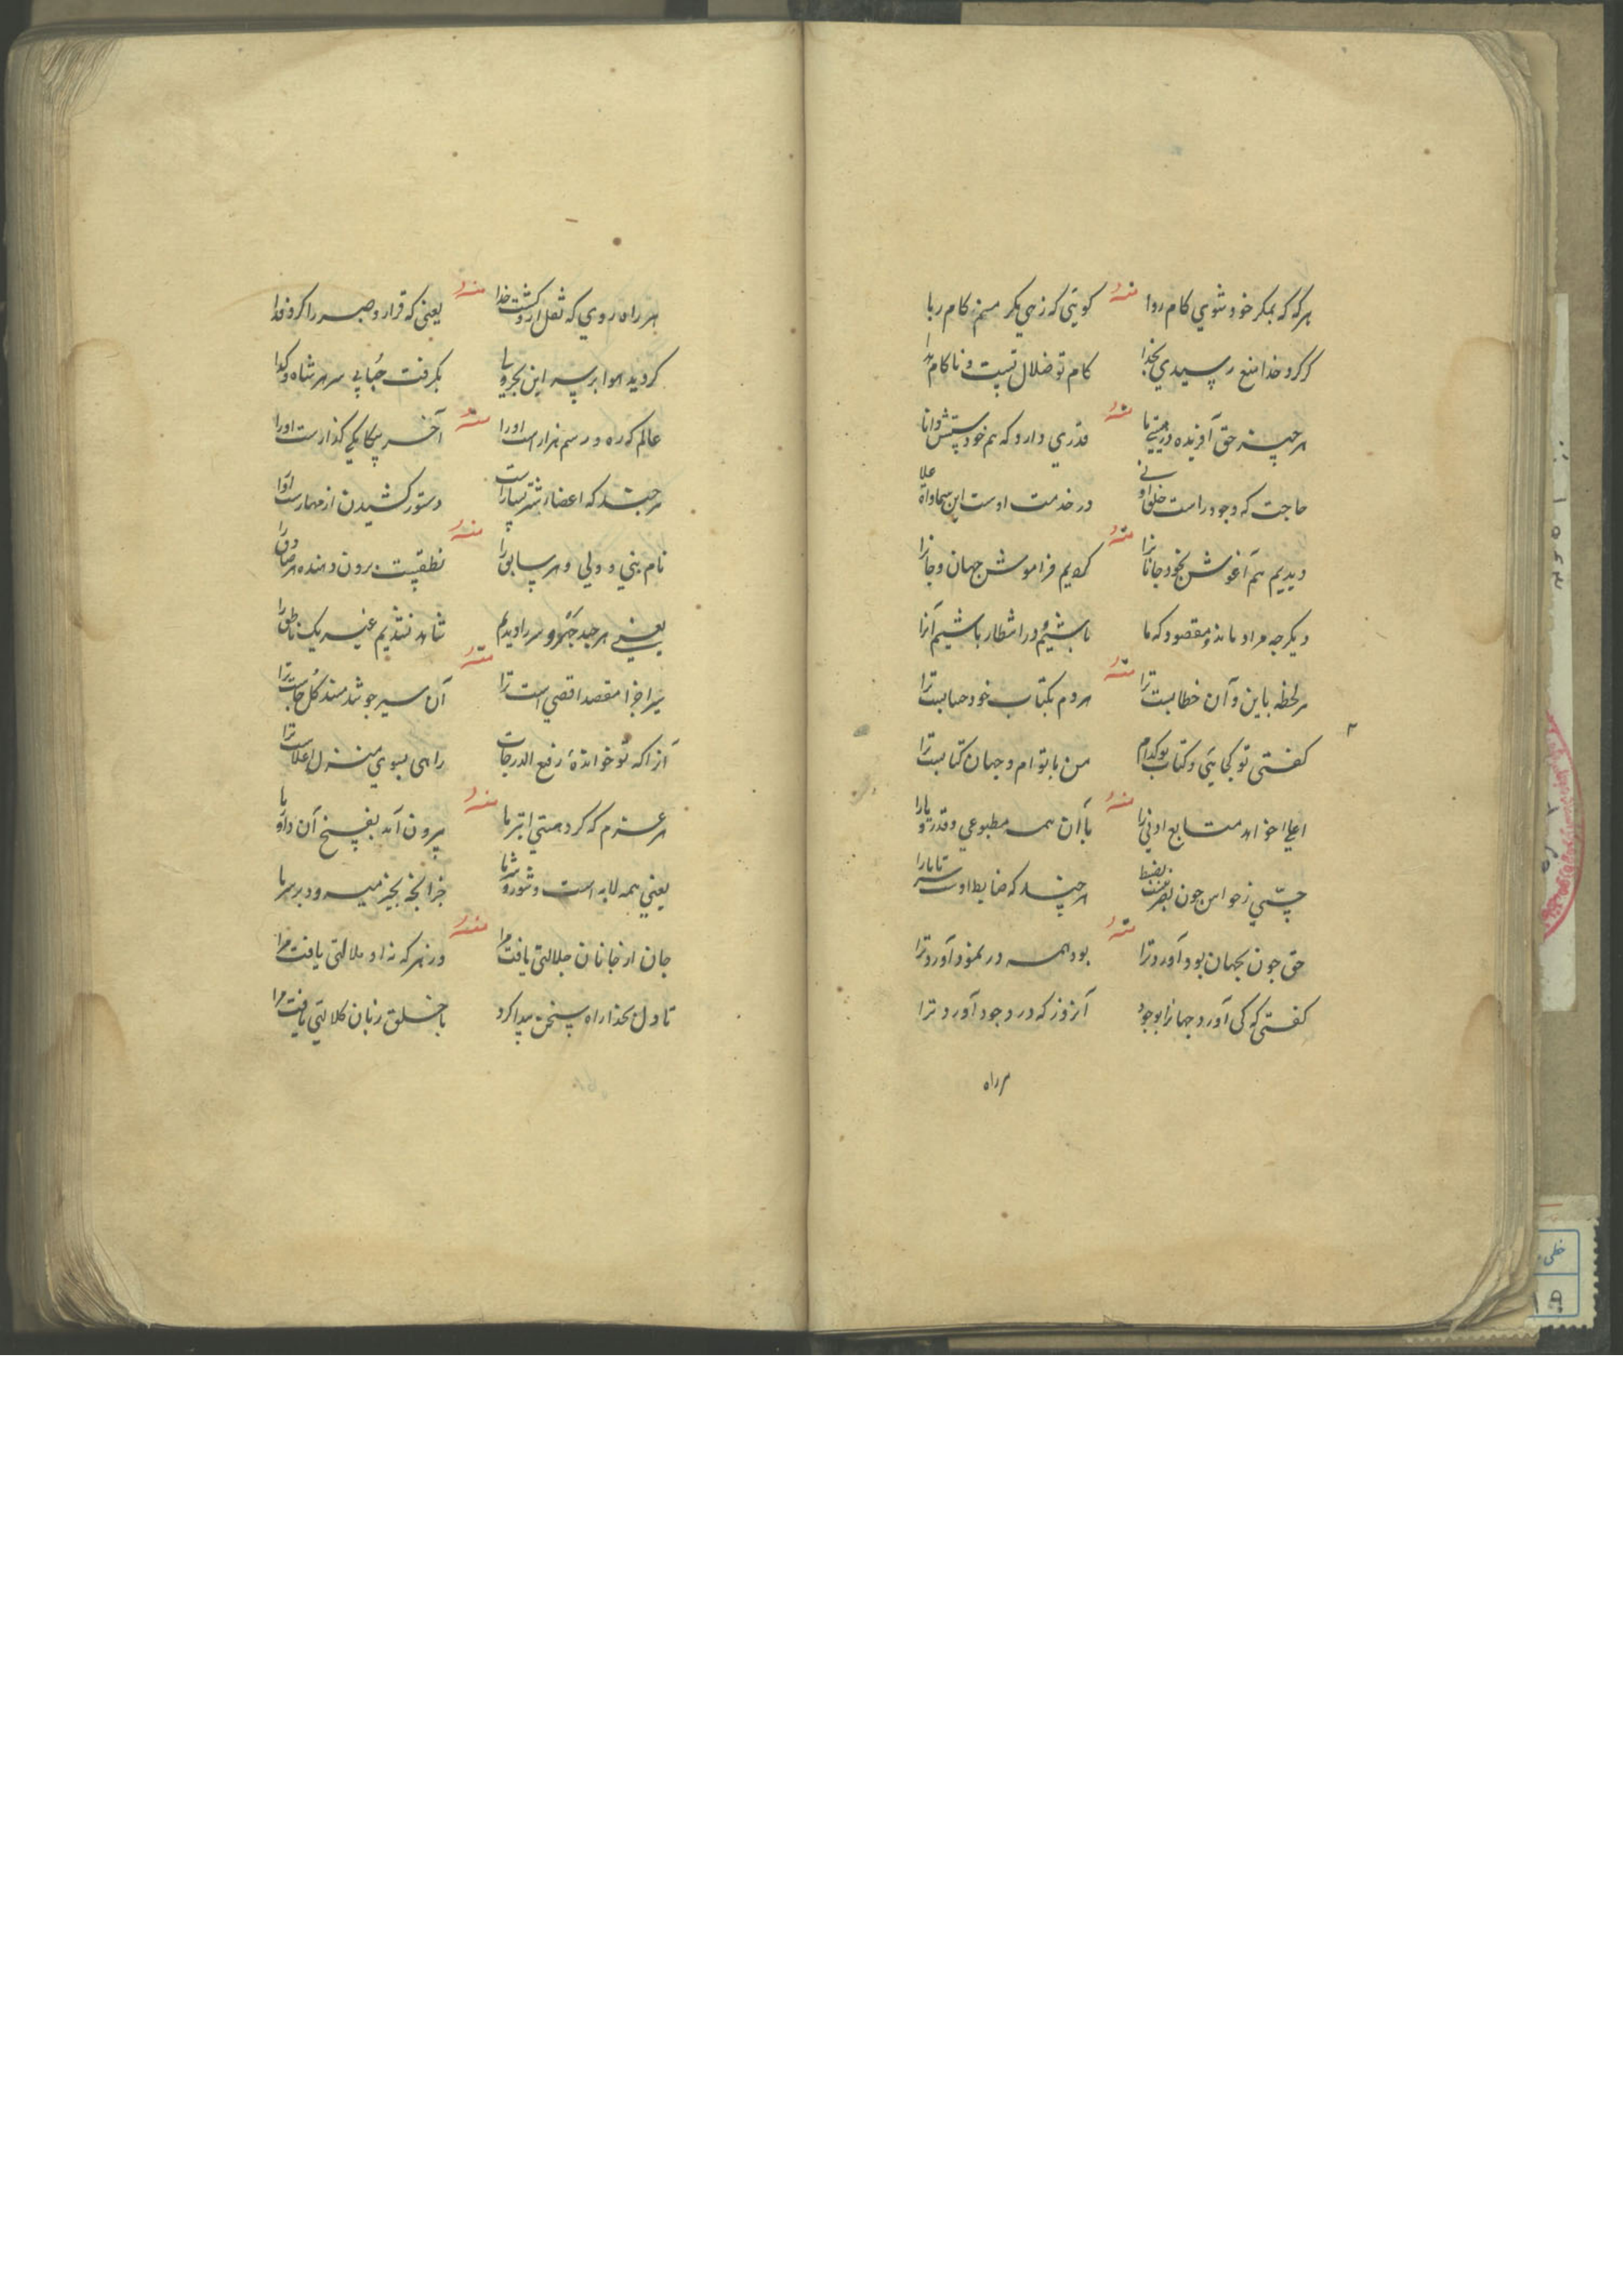 هرگه که بمکر خود شوی کام روا منه گویی که زهی مکر منم کام ربا
گر کرد خدا منع رسیدی بخدا کام تو ضلال تست و ناکام هدا
هر چیز حق آفریده در هستی ما منه قدری دارد که هم خودستش دانا
حاجت که وجود راست خلق او نی در خدمت اوست این سماوات علا
دیدیم هم آغوش بخود جانانرا منه کردیم فراموش جهان و جانرا
دیگر چه مراد ماند و مقصود که ما باشیم و در انتظار باشیم آنرا
هر لحظه باین و آن خطابست ترا منه هر دم بکتاب خود حسابست ترا
گفتی تو کجایی و کتاب تو کدام من با توام و جهان کتابست ترا
اعلی خواهد متابع ادنی را منه با آن همه مطبوعی و قدر و یارا
حسی ز حواس چون بضبط هر چند که ضابط اوست سر تا پا را
حق چون بجهان بود آورد ترا منه بود همه در نمود آورد ترا
گفتی که کی آورد جهانرا بوجود آنروز که در وجود آورد ترا
هر راه
هر راه روی که نقل ازو گشت خدا منه یعنی که قرار و صبر را کرد فدا
گردید هوا بر سر این بحر و بگرفت حبابی سر هر شاه و گدا
عالم که ره و رسم هزارست او را منه آخر بیکایکی گذارست او را
هر چند که اعضا شتر بسیارست دستور کشیدن از مهارست او را
نام نبی و ولی و هر سابق را منه نطقیست برون دهنده هر صادق را
یعنی هر چند جهر و سر را دیدیم شاهد نشدیم غیر یک ناطق را
سیر اجزا مقصد اقصی است ترا منه آن سیر چو شد مسند کل جاست ترا
آنرا که تو خوانده رفیع الدرجات راهی بسوی منزل اعلاست ترا
هر عزم که کرد هستی ابتر ما منه بیرون آمد بفسخ آن داور ما
یعنی همه لابه است و شور و شر ما جز آنچه بجبر میرود بر سر ما
جان از جانان جلالتی یافت مرا منه ور نه هر که نه او ملالتی یافت مرا
تا دل بخدا راه سخن پیدا کرد با خلق زبان کلالتی یافت مرا